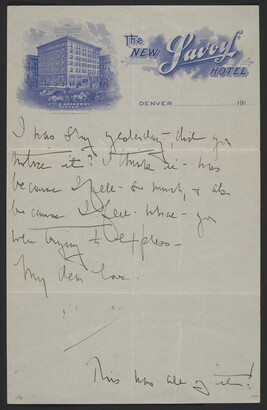 The
NEW Savoy
HOTEL
DENVER 191
I was shy yesterday, did you
notice it? I think it was
because I feel so much, & also
because I feel what you
were trying to express
My dear love
This was all of it!